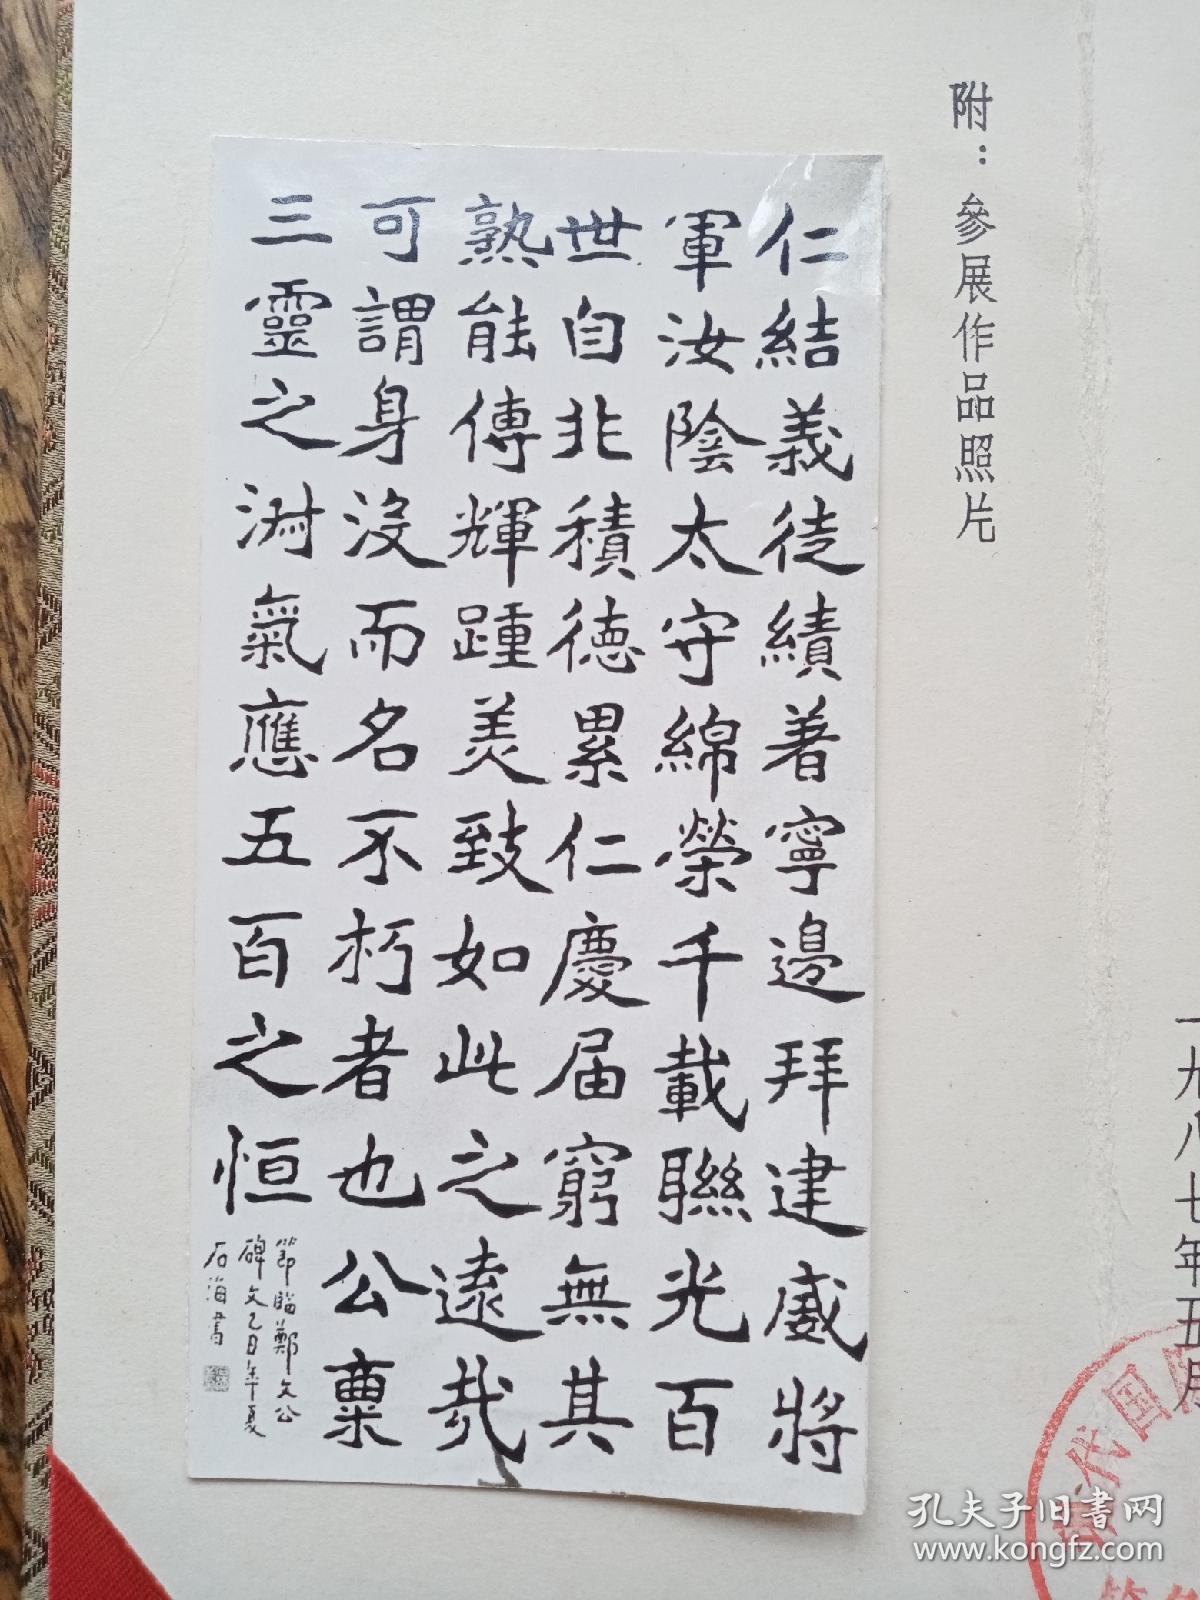 一九八七年五月
代国
附：參展作品照片
仁結義徒績著寧邊拜建威將
軍汝陰太守綿榮千載聯光百
世自非積徳累仁慶届窮無其
熟能傳輝踵美致如此之遠哉
可謂身没而名不朽者也公稟
三靈之淑氣應五百之恒
節臨鄭文公
碑文乙丑年夏
石海書
孔夫子旧书网
www.kongfz.com